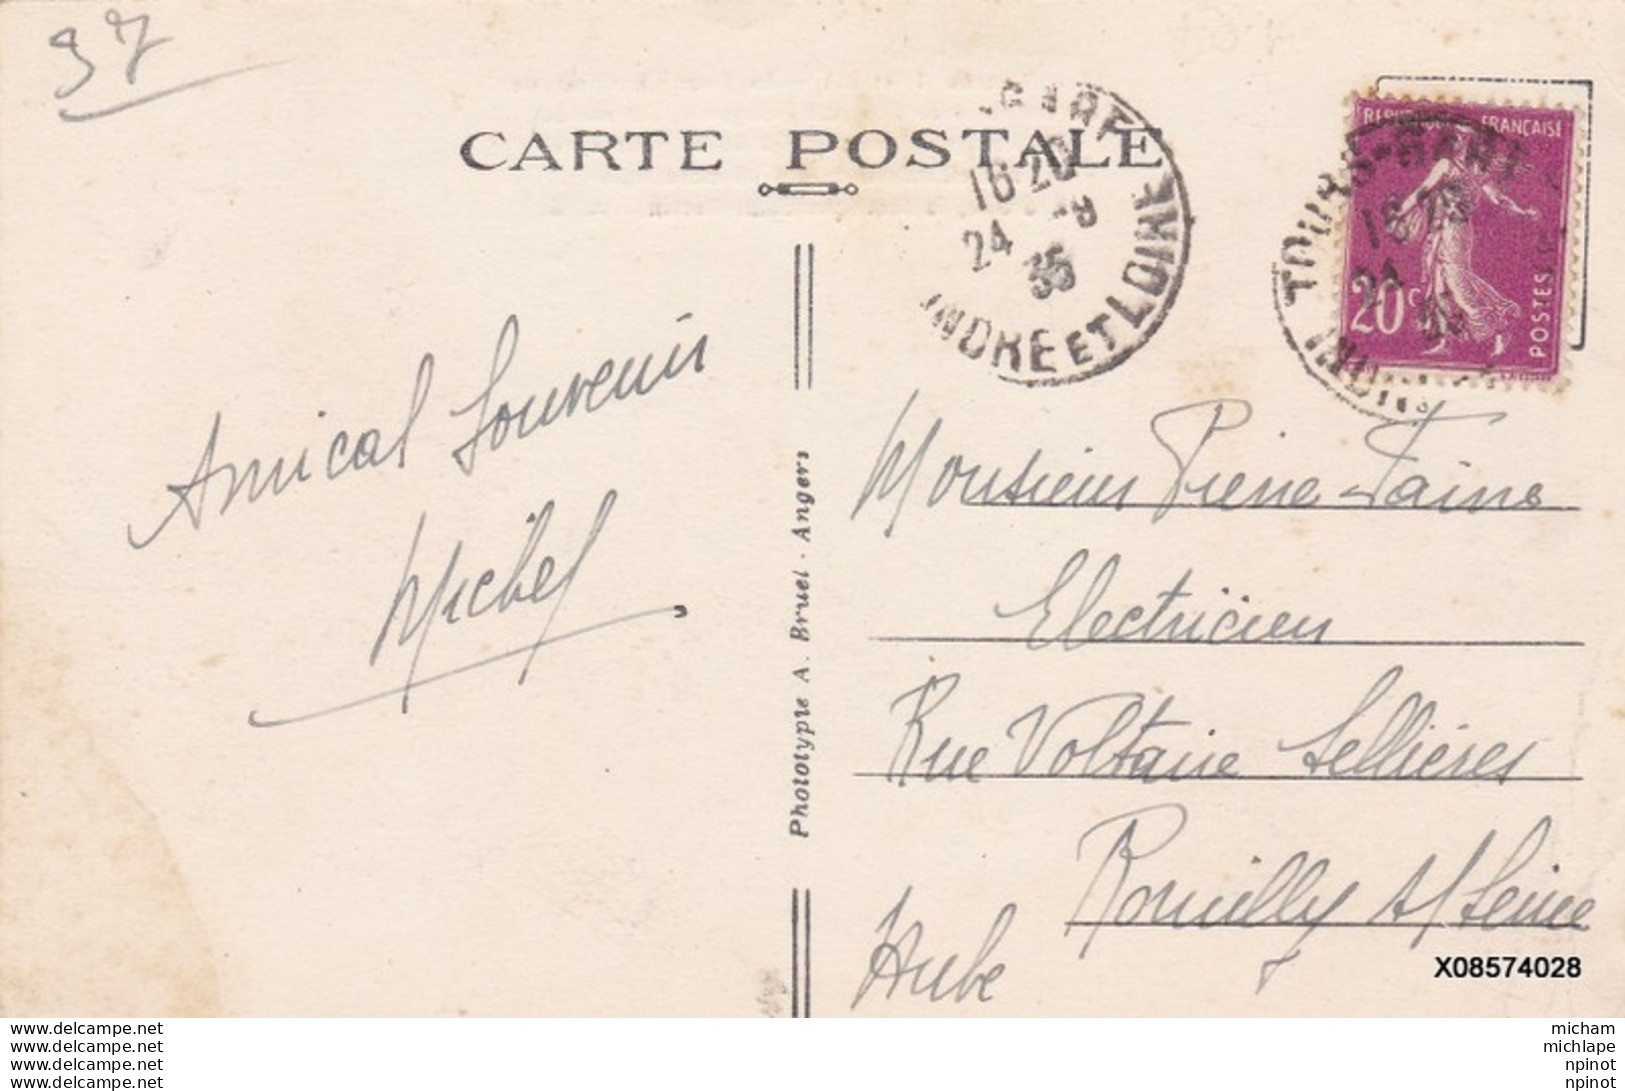 37
CARTE POSTALE
GARE
16 20
24 -8
35
INDRE ET LOIRE
REPUBLIQUE FRANÇAISE
20c
POSTES
TOURS-GARE
16 20
24
INDRE
Amical Souvenir
Michel
Phototypie A. Bruel - Angers
Monsieur Pierre
Electricien
Rue Voltaire Sellières
Romilly s/ Seine
Aube
X08574028
www.delcampe.net
www.delcampe.net
www.delcampe.net
www.delcampe.net
micham
michlape
npinot
npinot